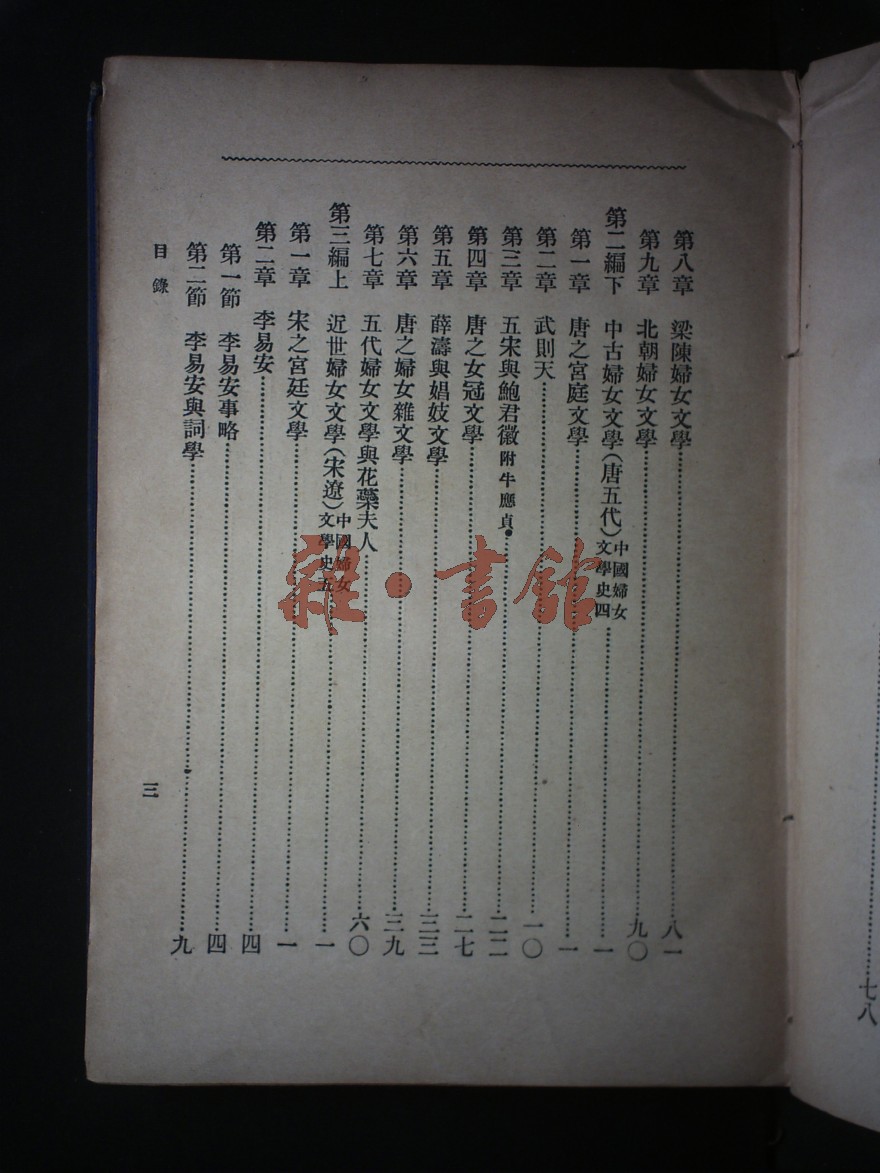 第八章　梁陳婦女文學……八一
第九章　北朝婦女文學……九〇
第二編下　中古婦女文學(唐五代)中國婦女文學史四……一
第一章　唐之宮庭文學……一
第二章　武則天……一〇
第三章　五宋與鮑君徽附牛應貞……二二
第四章　唐之女冠文學……二七
第五章　薛濤與娼妓文學……三三
第六章　唐之婦女雜文學……三九
第七章　五代婦女文學與花蘂夫人……六〇
第三編上　近世婦女文學(宋遼)中國婦女文學史五……一
第一章　宋之宮廷文學……一
第二章　李易安……四
第一節　李易安事略……四
第二節　李易安與詞學……九
目錄
三
七八
雜·書館